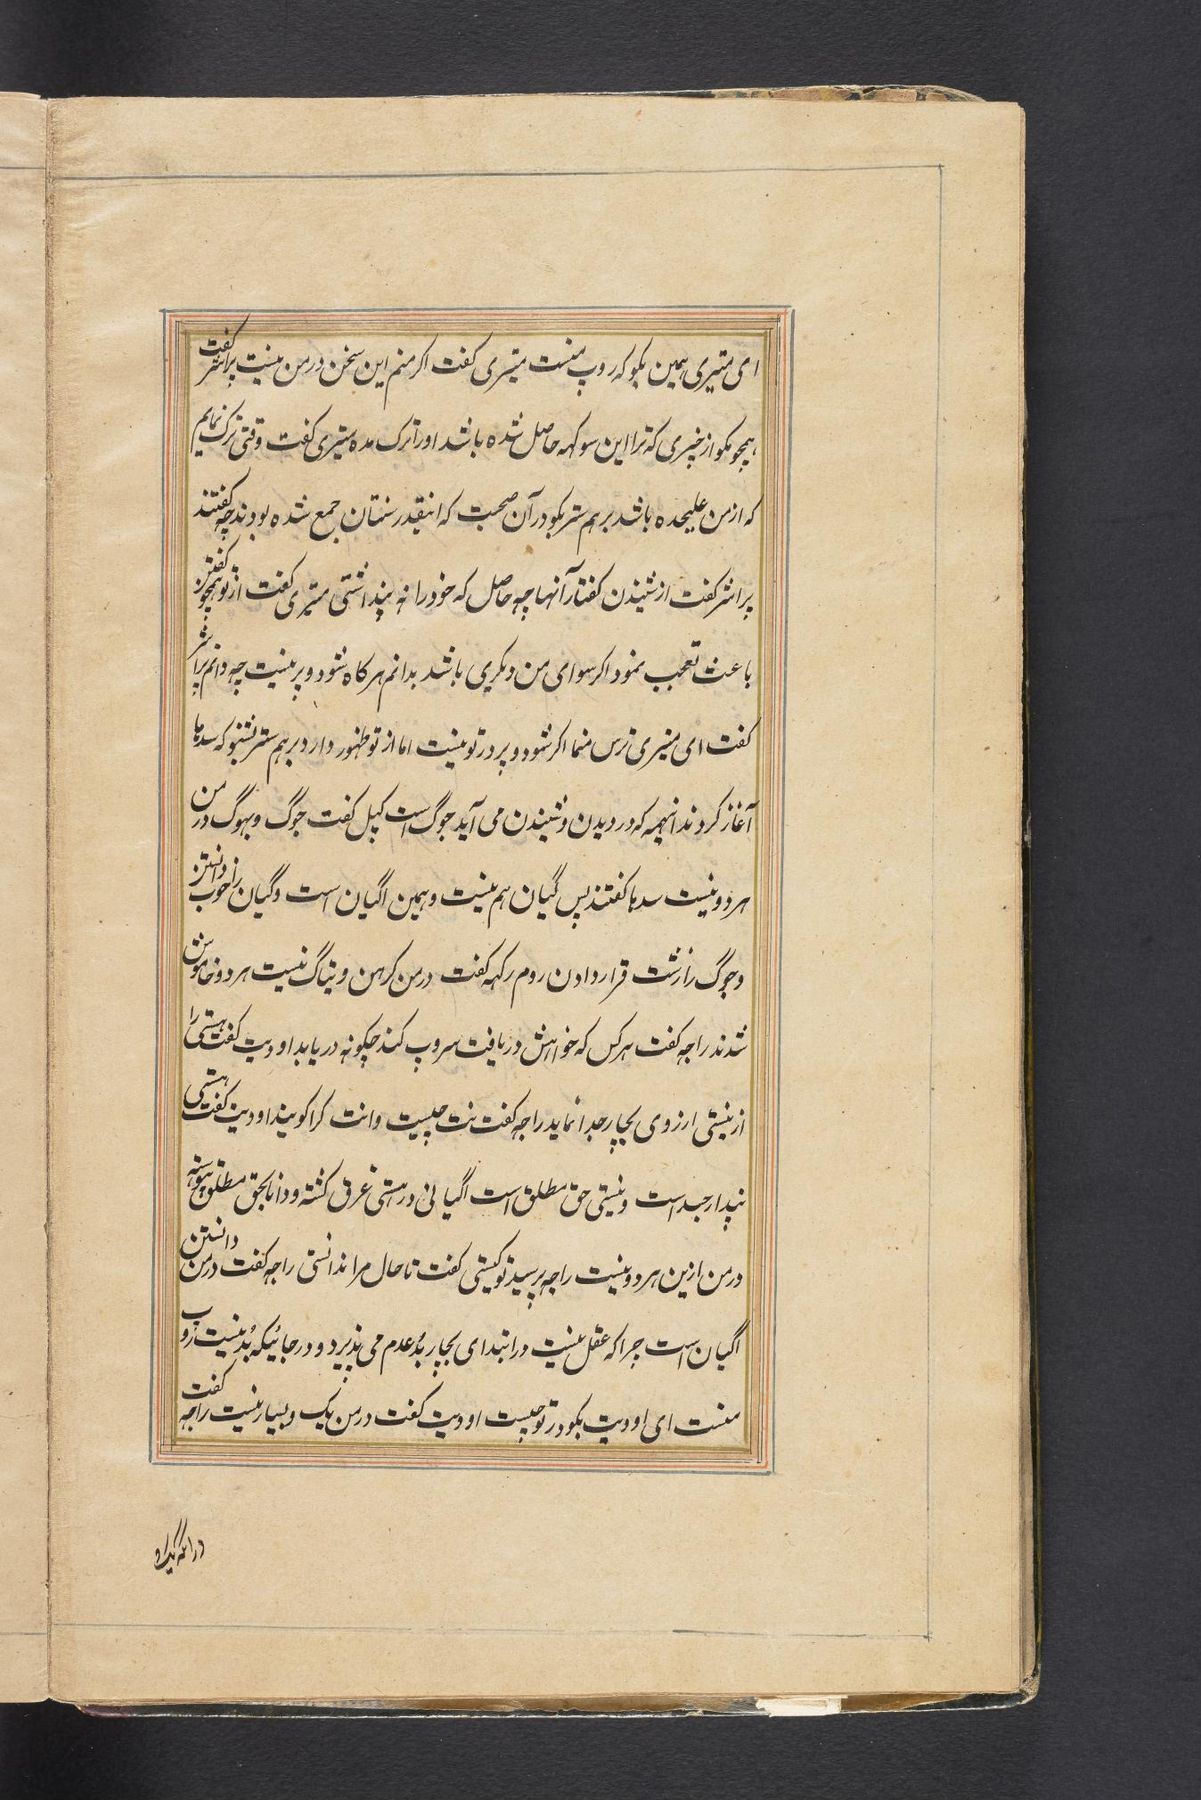 ای متیری همین بگو که روپ منست متیری گفت اگر منم این سخن در من نیست پراشر گفت
همچو مگو از چیزی که ترا این سوکهه حاصل شده باشد او را ترک مده متیری گفت وقتی ترک نمایم
که از من علیحده باشد برهم ستر بگو در آن صحبت که اینقدر سنتان جمع شده بودند چه گفتند
پراشر گفت از شنیدن گفتار آنها چه حاصل که خود را نه پنداشتی متیری گفت از تو همچو گفتن
باعث تعجب نمود اگر سوای من دیگری باشد بدانم هرگاه شود و پر نیست چه دانم پراشر
گفت ای متیری ترس منما اگر شود و پر در تو نیست اما از تو ظهور دارد برهم ستر بشنو که سدها
آغاز کردند اینهمه که در دیدن و شنیدن می آید جوگ است کپل گفت جوگ و بهوگ در من
هر دو نیست سدها گفتند پس گیان هم نیست و همین اگیان است و گیان را خوب دانستن
و جوگ را زشت قرار دادن روم رکهه گفت در من گرهن و تیاگ نیست هر دو خاموش
شدند راجه گفت هر کس که خواهش دریافت سروپ کند چگونه دریابد اودیت گفت هستی را
از نیستی ارزوی بچار جدا نماید راجه گفت نت چیست وانت کرا گویند اودیت گفت هستی
پندار جسد است و نیستی حق مطلق است اگیانی در هستی غرق گشته و دانا بحق مطلق پیوسته
در من ازین هر دو نیست راجه پرسید تو کیستی گفت تا حال مرا ندانستی راجه گفت در من دانستن
اگیان است چرا که عقل نیست در ابتدای بچار بُد عدم می پذیرد و در جائیکه بُد نیست روپ
منست ای اودیت بگو در تو چیست اودیت گفت در من یک و بسیار نیست راجه گفت